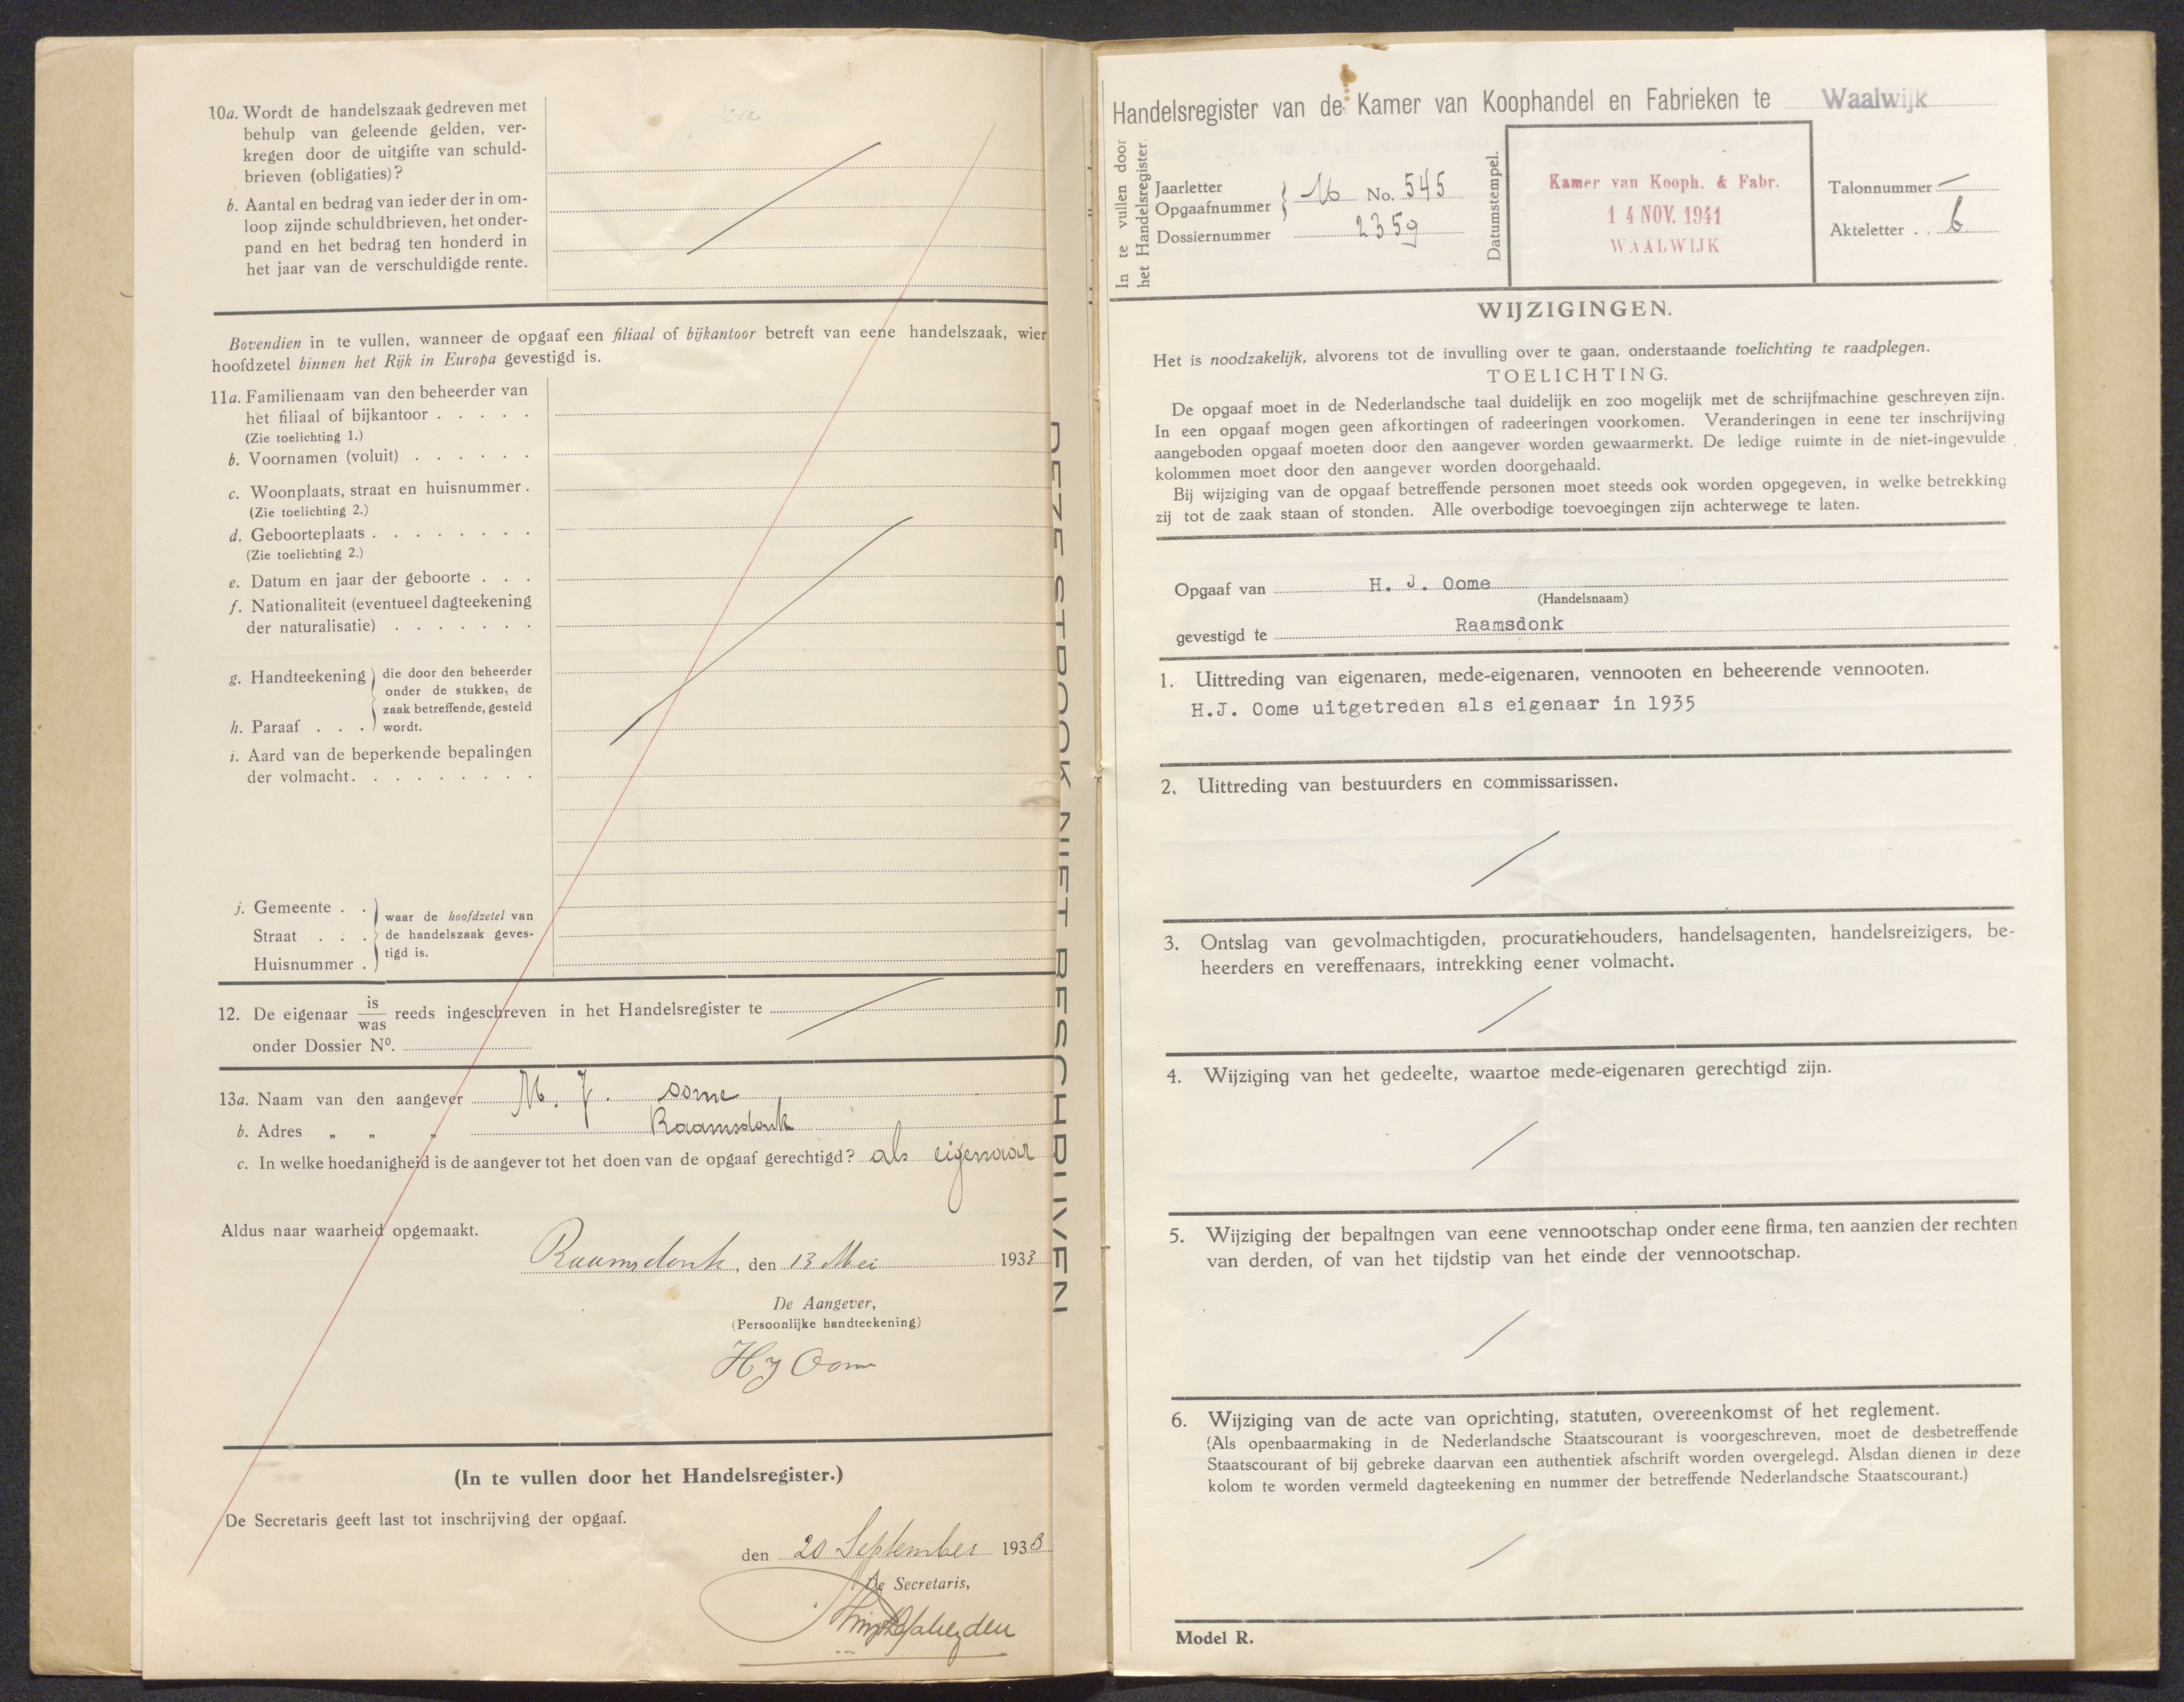 10a. Wordt de handelszaak gedreven met
behulp van geleende gelden, ver-
kregen door de uitgifte van schuld-
brieven (obligaties)?
b. Aantal en bedrag van ieder der in om-
loop zijnde schuldbrieven, het onder-
pand en het bedrag ten honderd in
het jaar van de verschuldigde rente.
Bovendien in te vullen, wanneer de opgaaf een filiaal of bijkantoor betreft van eene handelszaak, wier
hoofdzetel binnen het Rijk in Europa gevestigd is.
11a. Familienaam van den beheerder van
het filiaal of bijkantoor . . . . .
(Zie toelichting 1.)
b. Voornamen (voluit) . . . . . .
c. Woonplaats, straat en huisnummer .
(Zie toelichting 2.)
d. Geboorteplaats . . . . . . . .
(Zie toelichting 2.)
e. Datum en jaar der geboorte . . .
f. Nationaliteit (eventueel dagteekening
der naturalisatie) . . . . . . .
g. Handteekening } die door den beheerder
onder de stukken, de
zaak betreffende, gesteld
h. Paraaf . . . wordt.
i. Aard van de beperkende bepalingen
der volmacht . . . . . . . . .
j. Gemeente . . } waar de hoofdzetel van
Straat . . . de handelszaak geves-
Huisnummer . tigd is.
12. De eigenaar is/was reeds ingeschreven in het Handelsregister te
onder Dossier No.
13a. Naam van den aangever H. J. Oome
b. Adres " " " Raamsdonk
c. In welke hoedanigheid is de aangever tot het doen van de opgaaf gerechtigd? als eigenaar
Aldus naar waarheid opgemaakt.
Raamsdonk, den 13 Mei 1933
De Aangever,
(Persoonlijke handteekening)
HJ Oome
(In te vullen door het Handelsregister.)
De Secretaris geeft last tot inschrijving der opgaaf.
den 20 September 1933
De Secretaris,
DEZE STROOK NIET BESCHRIJVEN
Handelsregister van de Kamer van Koophandel en Fabrieken te Waalwijk
In te vullen door
het Handelsregister.
Jaarletter
Opgaafnummer } 16 No. 545
Dossiernummer 2359
Datumstempel.
Kamer van Kooph. & Fabr.
14 NOV. 1941
WAALWIJK
Talonnummer —
Akteletter . . b
WIJZIGINGEN.
Het is noodzakelijk, alvorens tot de invulling over te gaan, onderstaande toelichting te raadplegen.
TOELICHTING.
De opgaaf moet in de Nederlandsche taal duidelijk en zoo mogelijk met de schrijfmachine geschreven zijn.
In een opgaaf mogen geen afkortingen of radeeringen voorkomen. Veranderingen in eene ter inschrijving
aangeboden opgaaf moeten door den aangever worden gewaarmerkt. De ledige ruimte in de niet-ingevulde
kolommen moet door den aangever worden doorgehaald.
Bij wijziging van de opgaaf betreffende personen moet steeds ook worden opgegeven, in welke betrekking
zij tot de zaak staan of stonden. Alle overbodige toevoegingen zijn achterwege te laten.
Opgaaf van H. J. Oome
(Handelsnaam)
gevestigd te Raamsdonk
1. Uittreding van eigenaren, mede-eigenaren, vennooten en beheerende vennooten.
H.J. Oome uitgetreden als eigenaar in 1935
2. Uittreding van bestuurders en commissarissen.
3. Ontslag van gevolmachtigden, procuratiehouders, handelsagenten, handelsreizigers, be-
heerders en vereffenaars, intrekking eener volmacht.
4. Wijziging van het gedeelte, waartoe mede-eigenaren gerechtigd zijn.
5. Wijziging der bepalingen van eene vennootschap onder eene firma, ten aanzien der rechten
van derden, of van het tijdstip van het einde der vennootschap.
6. Wijziging van de acte van oprichting, statuten, overeenkomst of het reglement.
(Als openbaarmaking in de Nederlandsche Staatscourant is voorgeschreven, moet de desbetreffende
Staatscourant of bij gebreke daarvan een authentiek afschrift worden overgelegd. Alsdan dienen in deze
kolom te worden vermeld dagteekening en nummer der betreffende Nederlandsche Staatscourant.)
Model R.